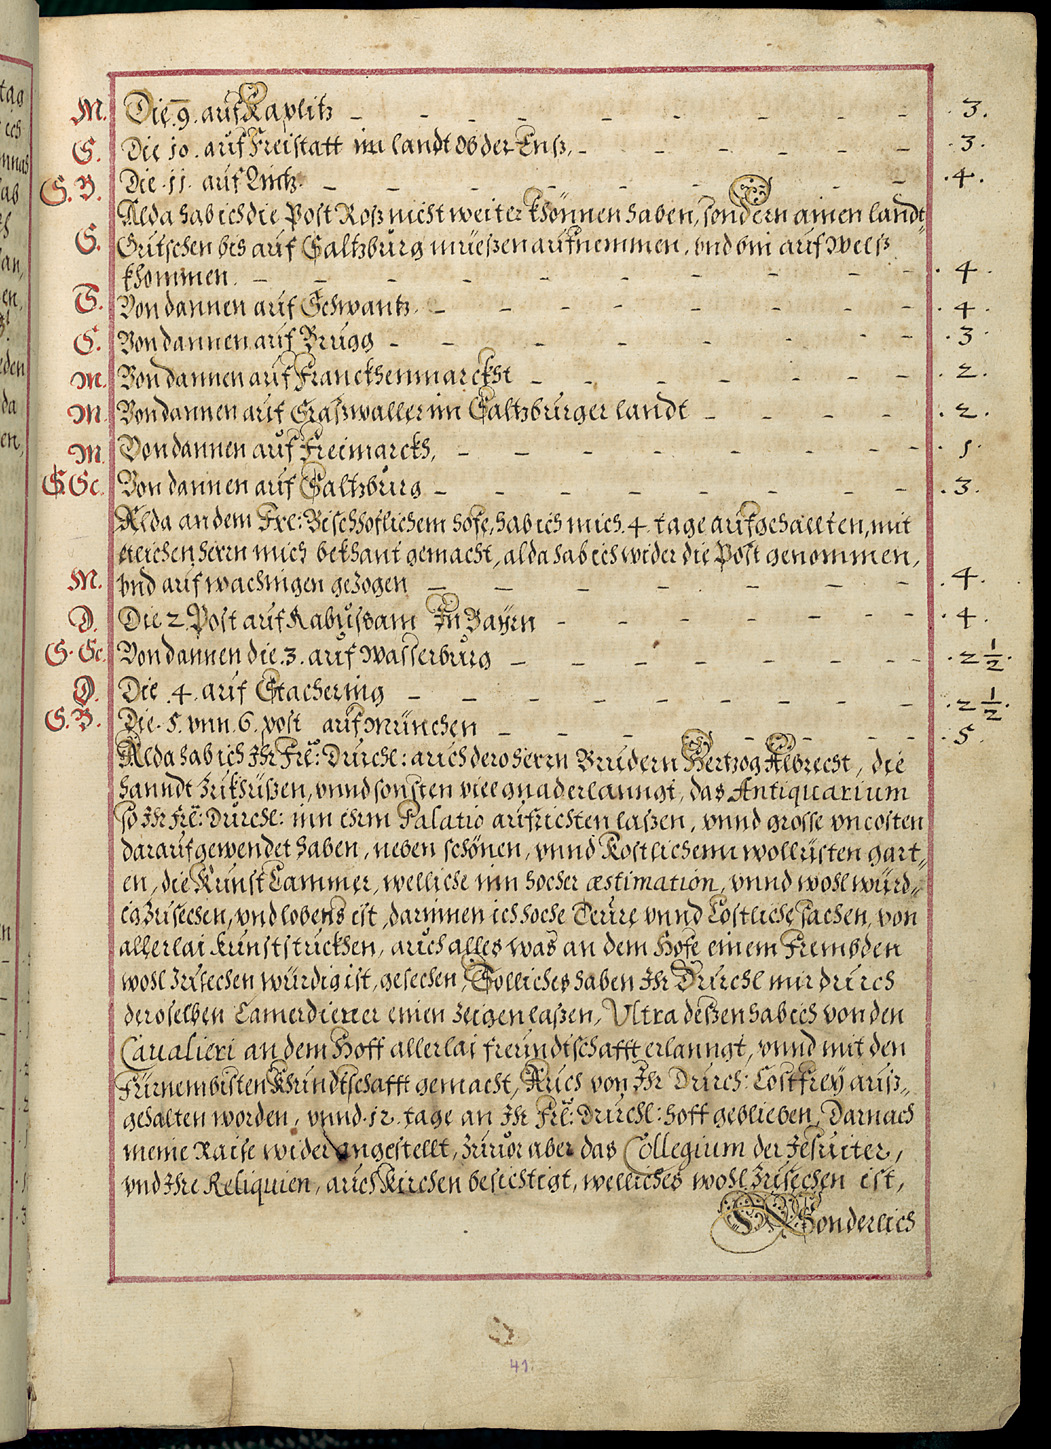 M. Die .9. auf Kaplitz - - - - - - - - 3.
S. Die 10. auf Freistatt im landt Ob der Enß, - - - - - 3.
S. B. Die .11. auf Lintz. - - - - - - - 4.
Alda hab ich die Post Roß nicht weiter khönnen haben, sondern ainen landt„
S. Gutschen bis auf Saltzburg müeßen aufnemmen, vnd bin auf Welß
khommen. - - - - - - - - 4.
S. Von dannen auf Schwantz. - - - - - - 4.
S. Von dannen auf Brugg - - - - - - - 3.
M. Von dannen auf Franckhenmarckht - - - - - 2.
M. Von dannen auf Straßwallen im Saltzburger landt - - - - 2.
M Von dannen auf Freimarckh, - - - - - - 1.
S. Sc. Von dannen auf Saltzburg - - - - - - 3.
Alda an dem Fre: Bischhoflichem hofe, hab ich mich .4. tage aufgehallten, mit
etlichen herrn mich bekhant gemacht, alda hab ich wider die Post genommen,
M. vnd auf Wachingen gezogen - - - - - - 4.
D. Die 2 Post auf Rabusham In Bayrn - - - - - - 4.
S. Sc. Von dannen die .3. auf Wasserburg - - - - - - 2 1/2.
D. Die .4. auf Stachering - - - - - - - 2 1/2.
S. B. Die .5. vnn .6. post auf München - - - - - - 5.
Alda hab ich Ihr Frl: Durchl: auch dero herrn Brudern Hertzog Albrecht, die
hanndt zu khüßen, vnnd sonsten viel gnad erlanngt, das Antiquarium
so Ihr Frl: Durchl: inn ihrm Palatio aufrichten laßen, vnnd grosse vncosten
darauf gewendet haben, neben schönen, vnnd Kostlichenn wollüsten gart„
en, die Kunst Cammer, welliche inn hocher æstimation, vnnd wohl würd„
ig zu sechen, vnd lobens ist, darinnen ich hoche Teüre vnnd Costliche sachen, von
allerlai kunststuckhen, auch alles was an dem Hofe einem Frembden
wohl zu sechen würdig ist, gesechen, Solliches haben Ihr Durchl mir durch
deroselben Camerdiener einen zeigen laßen, Ultra deßen hab ich von den
Caualieri an dem Hoff allerlai freundtschafft erlanngt, vnnd mit den
Fürnembsten Khundtschafft gemacht, Auch von Ihr Durch: Costfrey auß„
gehalten worden, vnnd .12. tage an Ihr Frl: Durchl: hoff geblieben, Darnach
meine Raise wider angestellt, zuuor aber das Collegium der Jesuiter,
vnd Ihre Reliquien, auch Kirchen besichtigt, welliches wohl zu sechen ist,
Sonderlich
41.